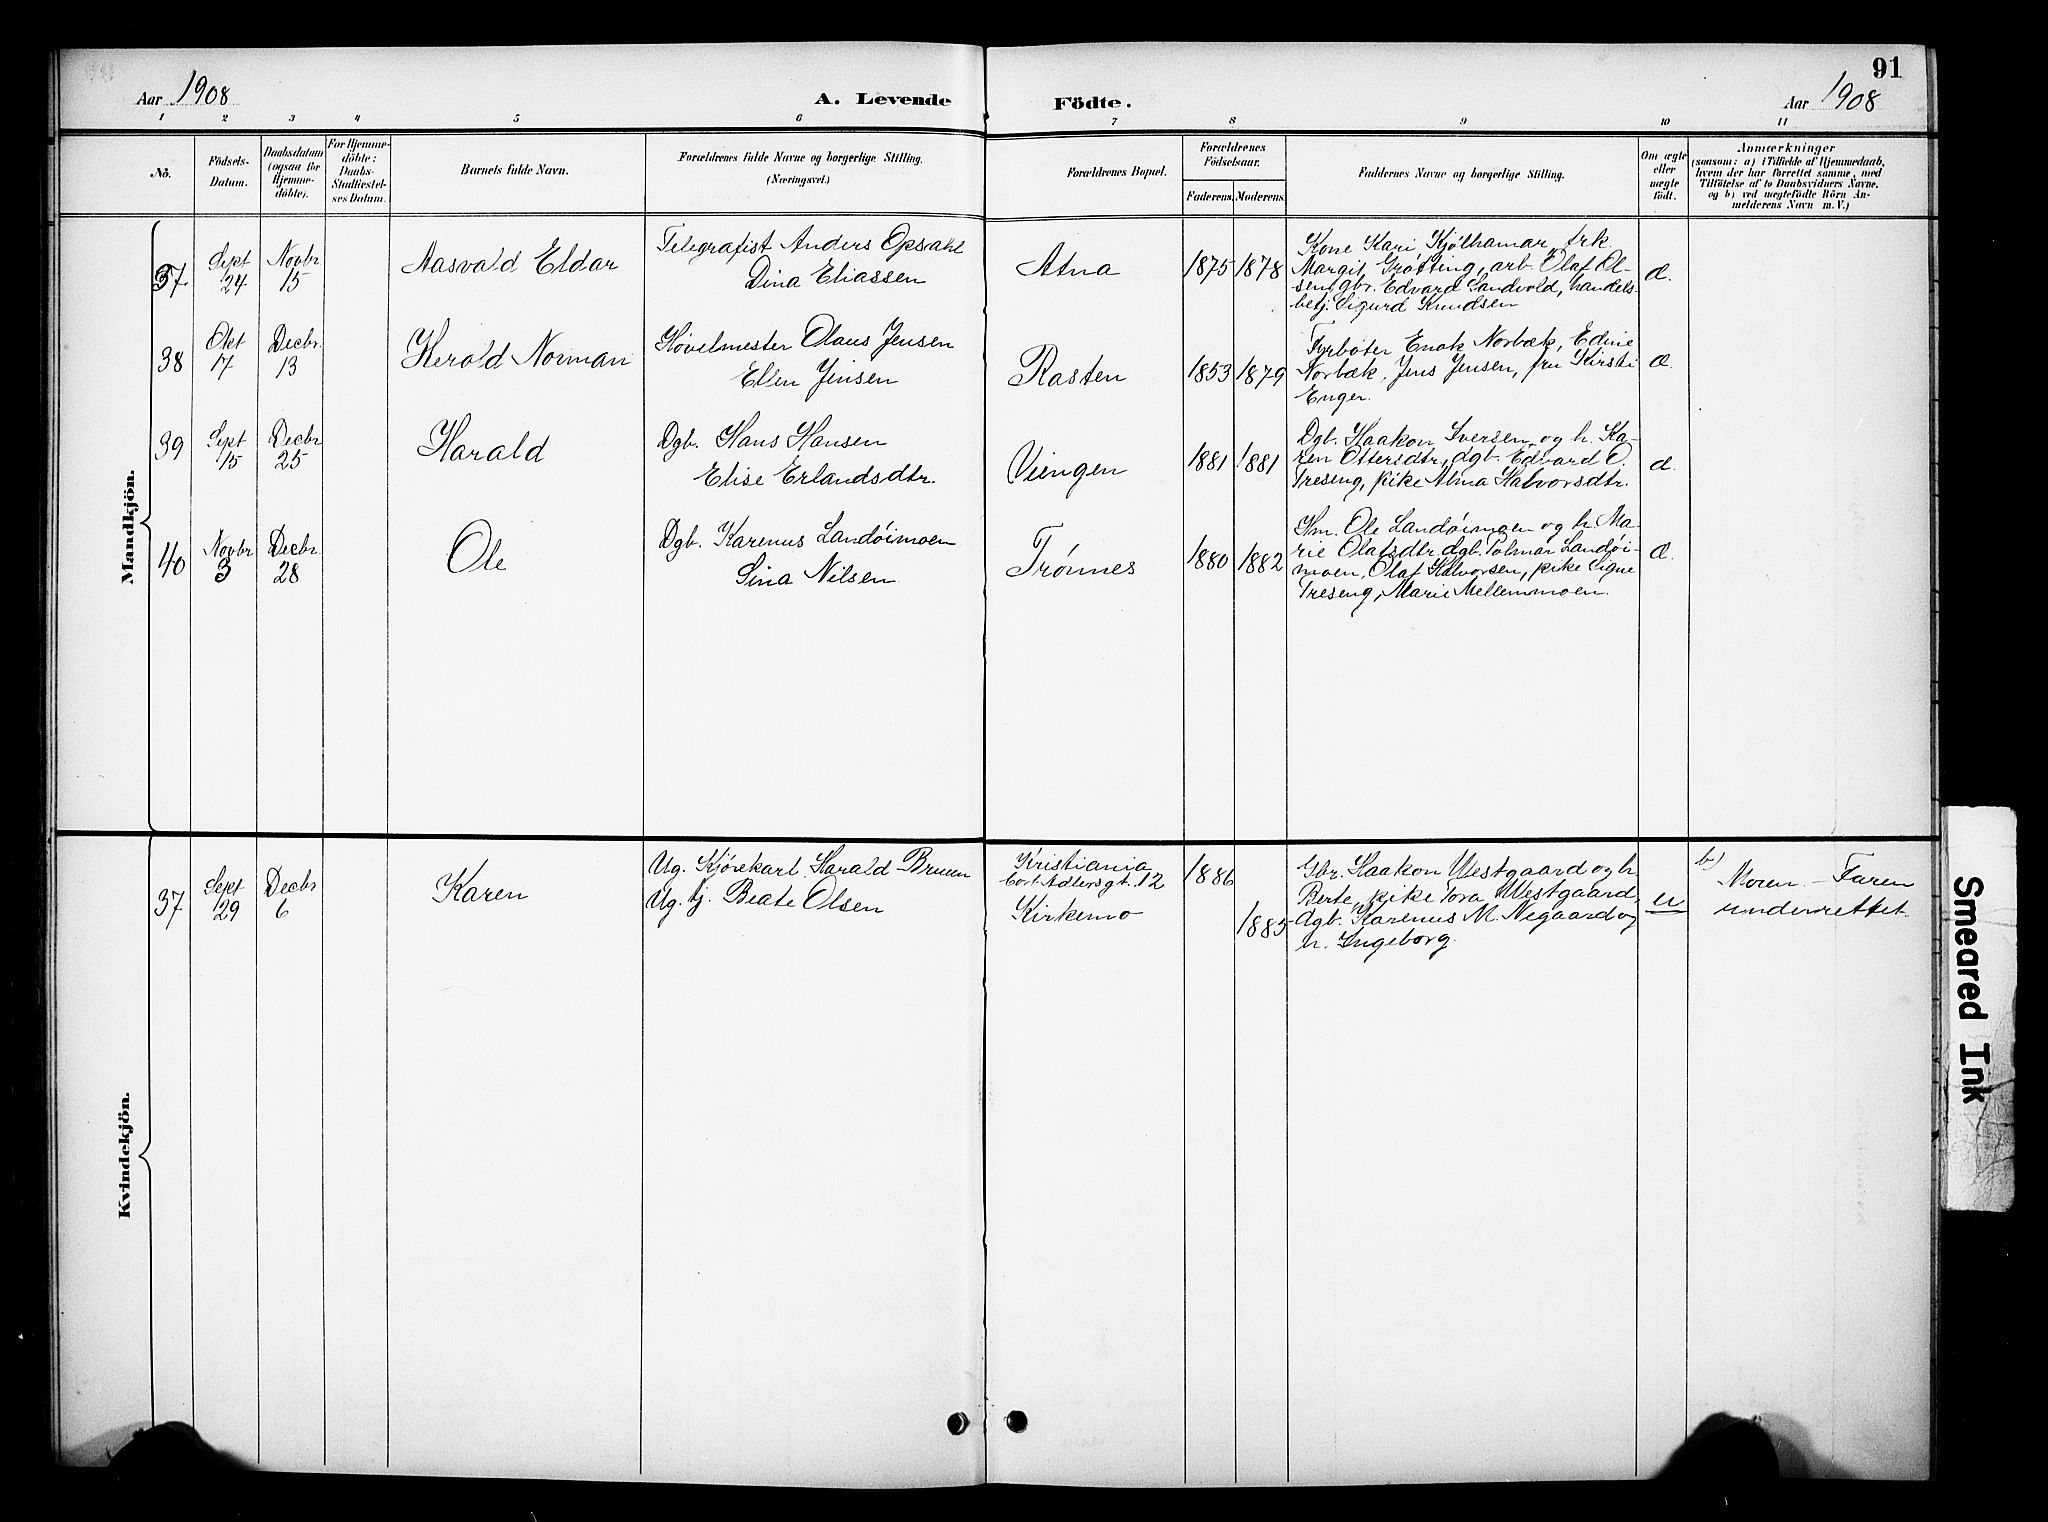 91
Aar 1908
A. Levende Födte.
Aar 1908
1 2 3 4 5 6 7 8 9 10 11
No.
Födsels-
Datum.
Daabsdatum
(ogsaa for
Hjemme-
döbte).
For Hjemme-
döbte:
Daabs-
Stadfæstel-
ses Datum.
Barnets fulde Navn.
Forældrenes fulde Navne og borgerlige Stilling.
(Næringsvei.)
Forældrenes Bopæl.
Forældrenes
Födselsaar.
Faderens. Moderens.
Faddernes Navne og borgerlige Stilling.
Om ægte
eller
uægte
födt.
Anmærkninger
(saasom: a) i Tilfælde af Hjemmedaab,
hvem der har forrettet samme, med
Tilföielse af to Daabsvidners Navne,
og b) ved uægtefödte Börn An-
melderens Navn m. V.)
Mandkjön.
37
Sept
24
Novbr
15
Aasvald Eldar
Telegrafist Anders Opsahl
Dina Eliassen
Atna
1875 1878
Kone Kari Kjølhamar, frk.
Margit Grøtting, arb. Olaf Ol-
sen, gbr. Edvard Sandvold, handels-
betj. Sigurd Knudsen
æ.
38
Okt
7
Decbr.
13
Herold Norman
Høvelmester Olaus Jensen
Ellen Jensen
Rasten
1853 1879
Fyrbøter Enok Norbæk, Edine
Norbæk, Jens Jensen, fru Kirsti
Enger.
æ.
39
Sept
15
Decbr
25
Harald
Dgb. Hans Hansen
Elise Erlandsdtr.
Viengen
1881 1881
Dgb. Haakon Iversen og h. Ka-
ren Ottersdtr, dgb. Edvard O.
Treseng, pike Alma Halvorsdtr.
æ.
40
Novbr
3
Decbr.
28
Ole
Dgb. Karenus Landøimoen
Sina Nilsen
Trønnes
1880 1882
Hm. Ole Landøimoen og h. Ma-
rie Olafsdtr, dgb. Palmar Landøi-
moen, Olaf Halvorsen, pike Signe
Treseng, Marie Mellemmoen.
æ.
Kvindekjön.
37
Sept
29
Decbr
6
Karen
Ug. Kjørekarl Harald Bruun
Ug. tj. Beate Olsen
Kristiania
Cort Adlersgt. 12
Kirkemo
1886
1885
Gbr. Haakon Westgaard og h.
Berte, pike Tora Westgaard,
dgb. Karenus M. Negaard og
h. Ingeborg.
u
b) Moren. – Faren
underrettet.
Smeared Ink